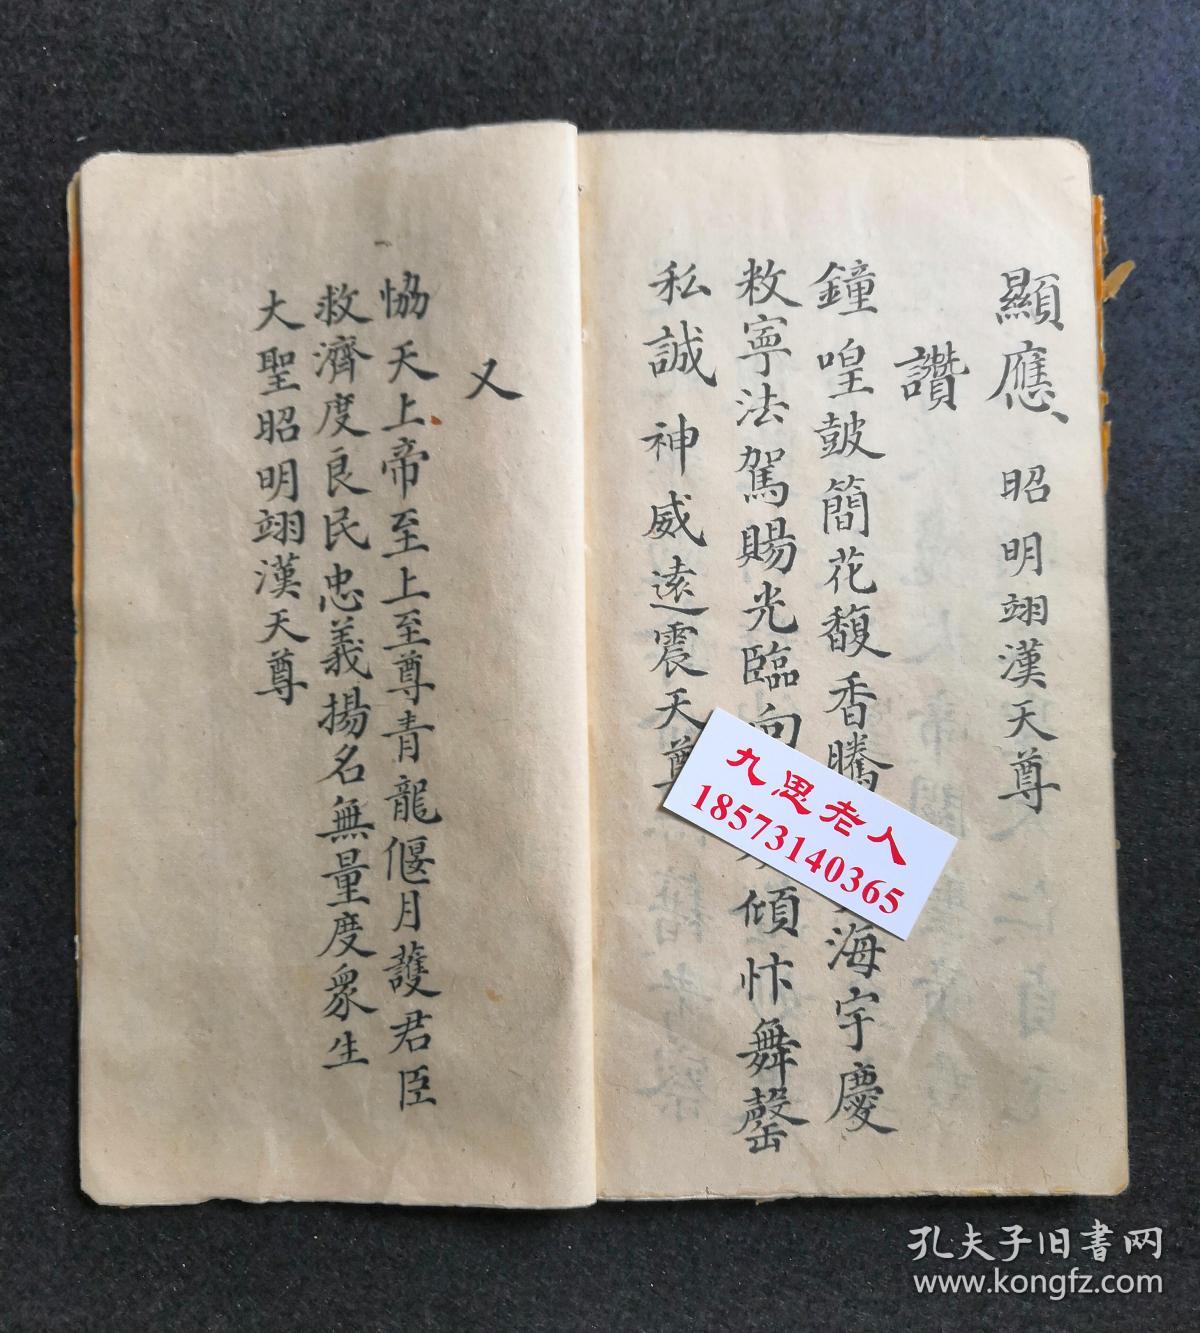 顯應 昭明翊漢天尊
讚
鐘喤鼓簡花馥香騰海宇慶
敉寧法駕賜光臨向傾忭舞罄
私誠 神威遠震天尊
又
協天上帝至上至尊青龍偃月護君臣
救濟度良民忠義揚名無量度眾生
大聖昭明翊漢天尊
九思老人
18573140365
孔夫子旧書网
www.kongfz.com